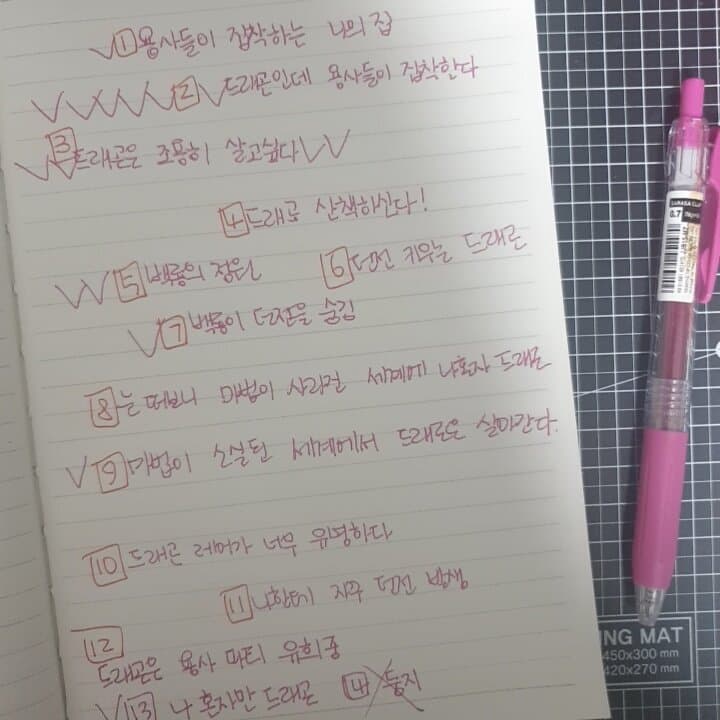 1 용사들이 집착하는 나의 집
2 드래곤인데 용사들이 집착한다
3 드래곤은 조용히 살고싶다
4 드래곤 산책하신다!
5 백룡의 정원 6 던전 키우는 드래곤
7 백룡이 던전을 숨김
8 눈 떠보니 마법이 사라진 세계에 나혼자 드래곤
9 마법이 소실된 세계에서 드래곤은 살아간다.
10 드래곤 레어가 너무 유명하다
11 나한테 자주 던전 발생
12
드래곤은 용사 파티 유희중
13 나 혼자만 드래곤 14 둥지
0.7
NG MAT
450x300 mm
420x270 mm